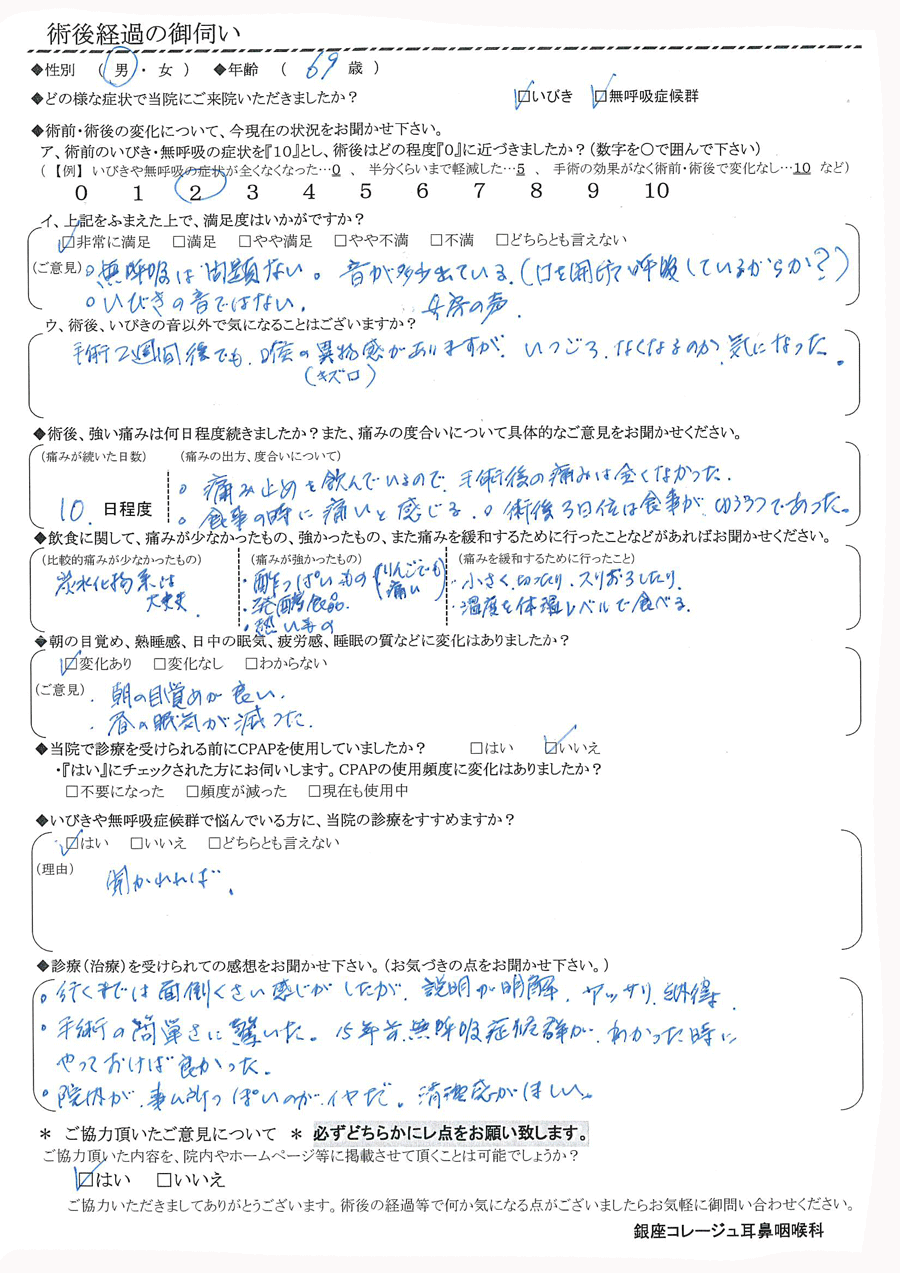 術後経過の御伺い
◆性別 ( 男 ・ 女 ) ◆年齢 ( 69 歳 )
◆どの様な症状で当院にご来院いただきましたか? ☑いびき ☑無呼吸症候群
◆術前・術後の変化について、今現在の状況をお聞かせ下さい。
ア、術前のいびき・無呼吸の症状を『10』とし、術後はどの程度『0』に近づきましたか?(数字を○で囲んで下さい)
(【例】 いびきや無呼吸の症状が全くなくなった…0 、 半分くらいまで軽減した…5 、 手術の効果がなく術前・術後で変化なし…10 など)
0 1 2 3 4 5 6 7 8 9 10
イ、上記をふまえた上で、満足度はいかがですか?
☑非常に満足 □満足 □やや満足 □やや不満 □不満 □どちらとも言えない
(ご意見) 。無呼吸は問題ない。 音が多少出ている。(口を開いて呼吸しているからか?)
。いびきの音ではない。 女房の声.
ウ、術後、いびきの音以外で気になることはございますか?
手術2週間後でも、喉の異物感がありますが いつごろ、なくなるのか 気になった。
(キズ口)
◆術後、強い痛みは何日程度続きましたか?また、痛みの度合いについて具体的なご意見をお聞かせください。
(痛みが続いた日数) (痛みの出方、度合いについて)
。痛み止めを飲んでいるので、手術後の痛みは全くなかった.
10. 日程度
。食事の時に痛いと感じる。 。術後3日位は食事が ゆううつであった。
◆飲食に関して、痛みが少なかったもの、強かったもの、また痛みを緩和するために行ったことなどがあればお聞かせください。
(比較的痛みが少なかったもの) (痛みが強かったもの) (痛みを緩和するために行ったこと)
炭水化物系は
大丈夫.
・酢っぱいもの (りんごでも痛い)
・発酵食品.
・熱いもの
・小さく、切ったり、スリおろしたり.
・温度を体温レベルで食べる.
◆朝の目覚め、熟睡感、日中の眠気、疲労感、睡眠の質などに変化はありましたか?
☑変化あり □変化なし □わからない
(ご意見) . 朝の目覚めが良い.
. 昼の眠気が減った.
◆当院で診療を受けられる前にCPAPを使用していましたか? □はい ☑いいえ
・『はい』にチェックされた方にお伺いします。CPAPの使用頻度に変化はありましたか?
□不要になった □頻度が減った □現在も使用中
◆いびきや無呼吸症候群で悩んでいる方に、当院の診療をすすめますか?
☑はい □いいえ □どちらとも言えない
(理由) 聞かれれば.
◆診療(治療)を受けられての感想をお聞かせ下さい。(お気づきの点をお聞かせ下さい。)
。行くまでは面倒くさい感じがしたが、説明が明解、アッサリ納得.
。手術の簡単さに驚いた。 15年前無呼吸症候群が、わかった時に
やっておけば良かった。
。院内が、事ム所っぽいのが、イヤだ。 清潔感がほしい。
* ご協力頂いたご意見について * 必ずどちらかにレ点をお願い致します。
ご協力頂いた内容を、院内やホームページ等に掲載させて頂くことは可能でしょうか?
☑はい □いいえ
ご協力いただきましてありがとうございます。術後の経過等で何か気になる点がございましたらお気軽に御問い合わせください。
銀座コレージュ耳鼻咽喉科